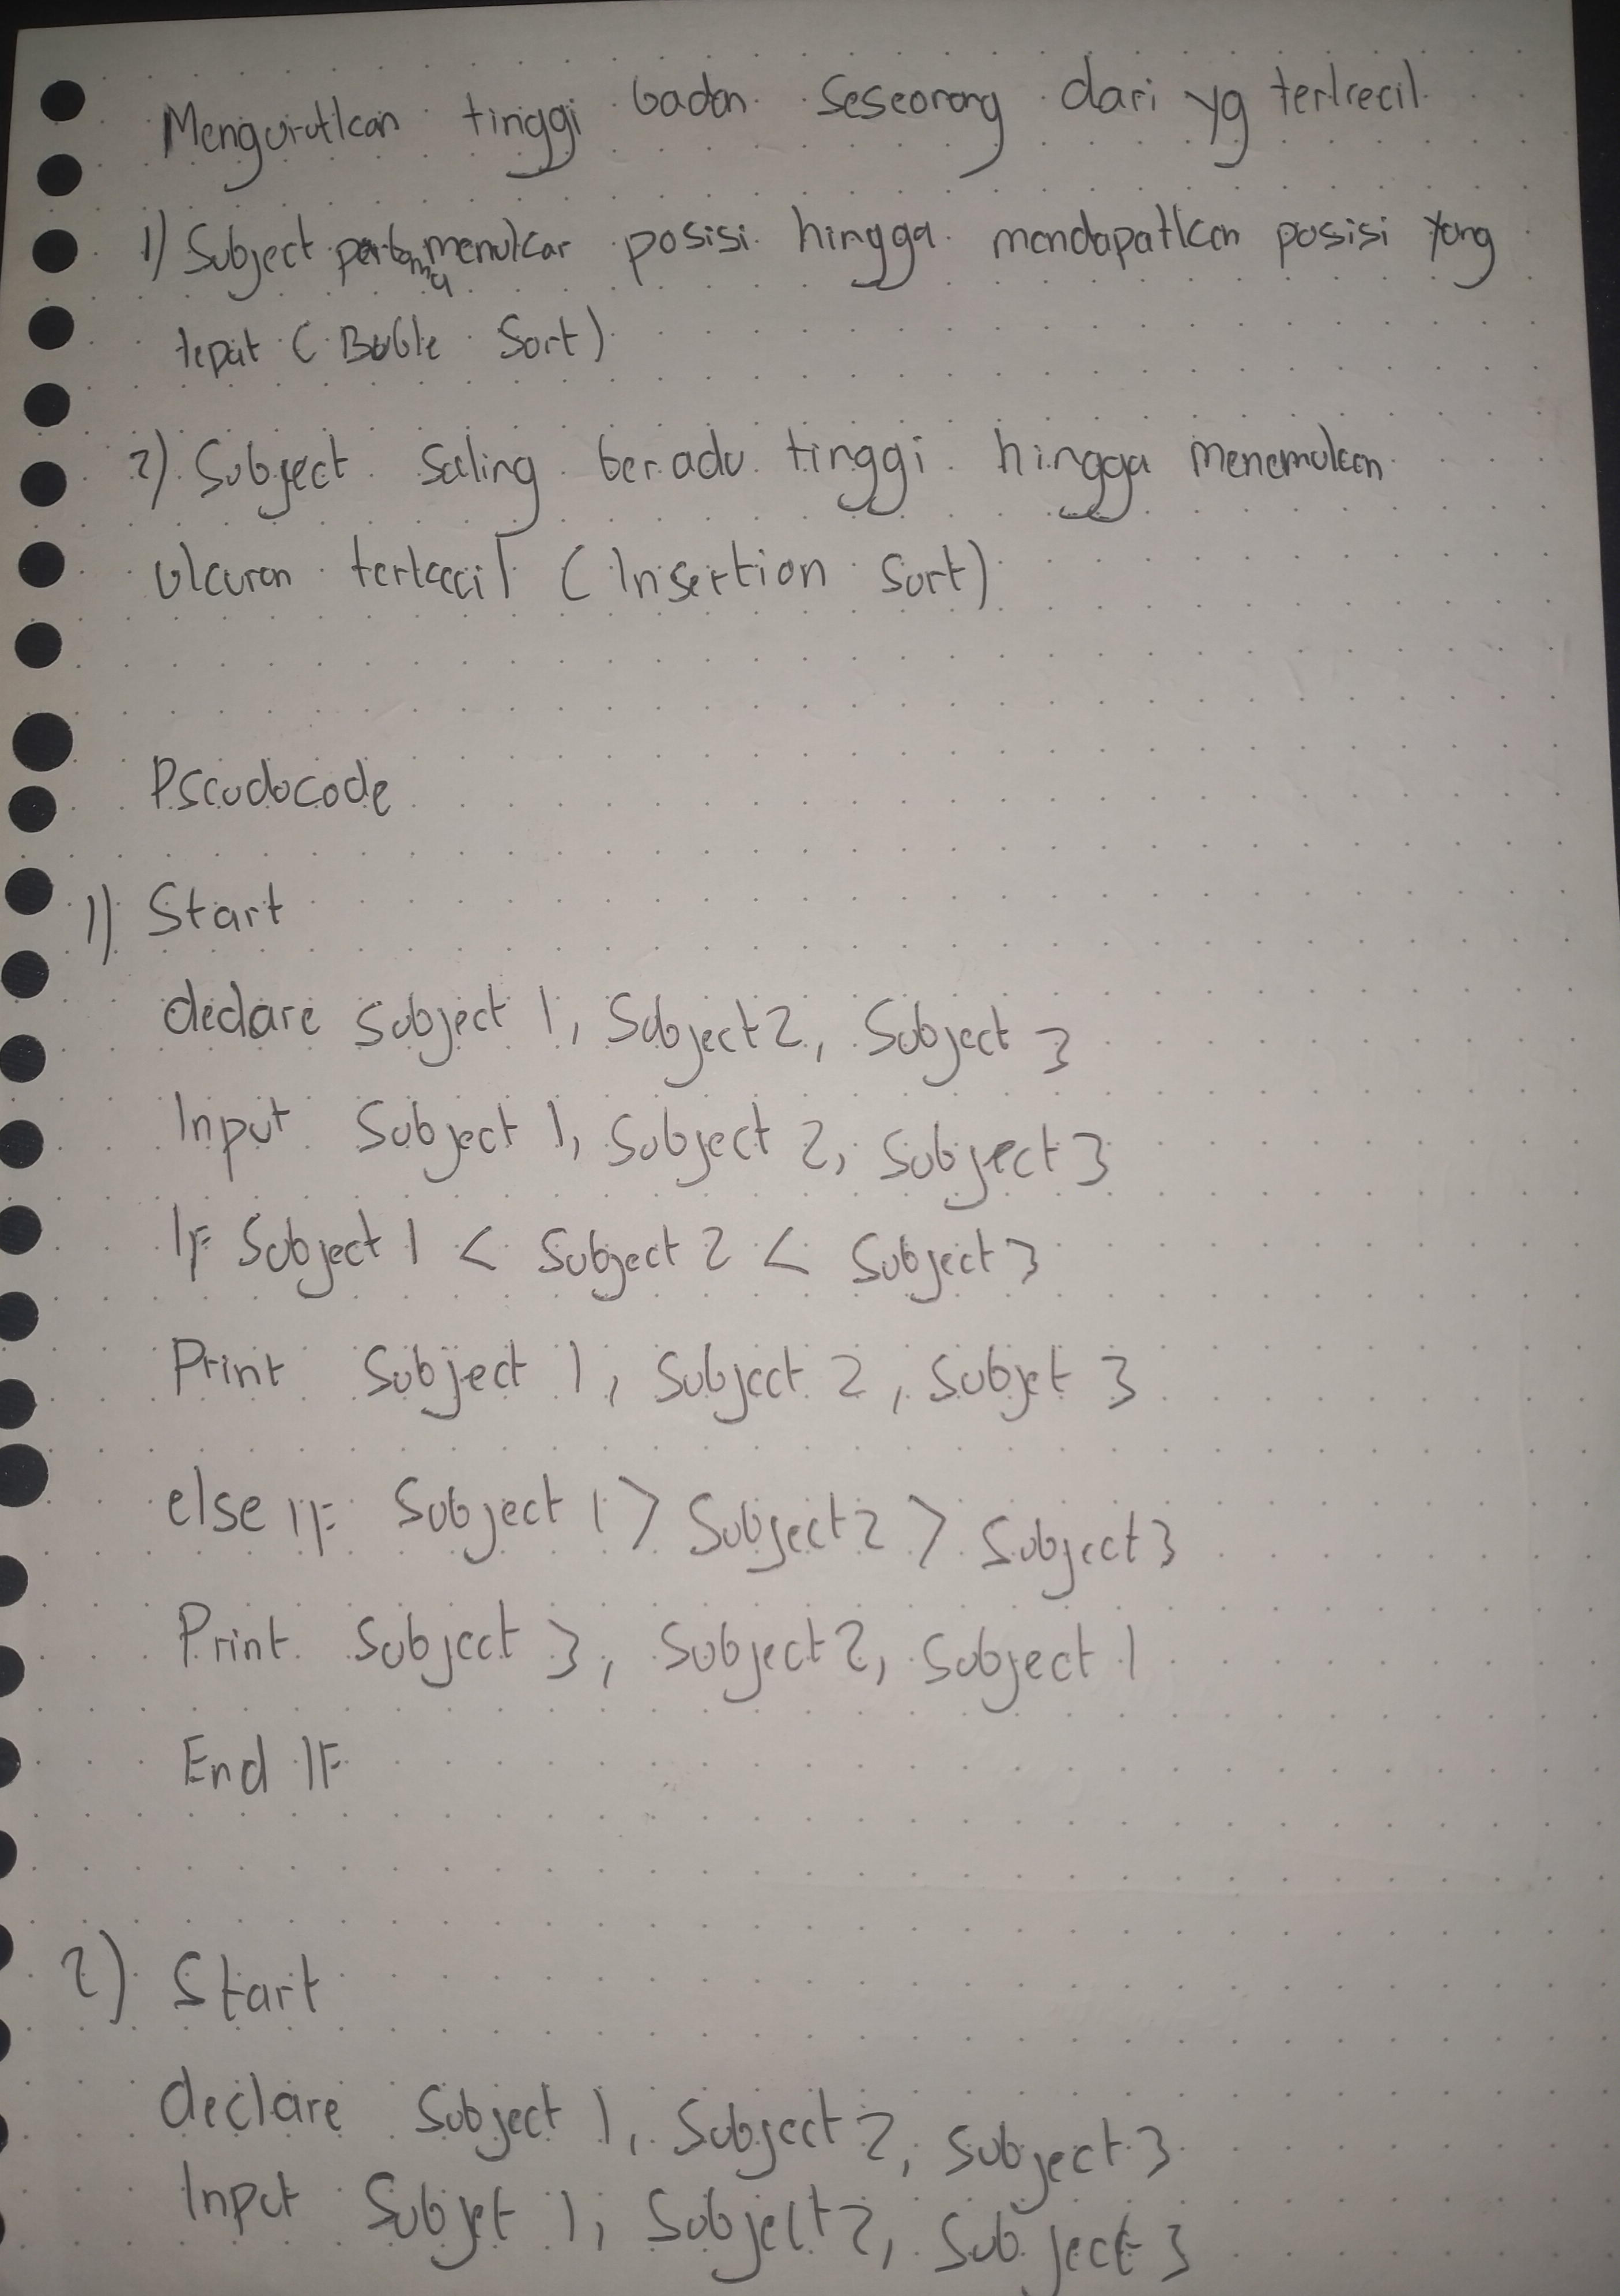 Mengurutkan tinggi badan seseorang dari yg terkecil
1) Subject pertama menukar posisi hingga mendapatkan posisi yang
tepat ( Buble Sort)
2) Subject saling beradu tinggi hingga menemukan
ukuran terkecil ( Insertion Sort)
Pseudocode
1) Start
declare Subject 1, Subject 2, Subject 3
Input Subject 1, Subject 2, Subject 3
IF Subject 1 < Subject 2 < Subject 3
Print Subject 1, Subject 2, Subjet 3
else IF Subject 1 > Subject 2 > Subject 3
Print Subject 3, Subject 2, Subject 1
End IF
2) Start
declare Subject 1, Subject 2, Subject 3
Input Subjet 1, Subject 2, Subject 3